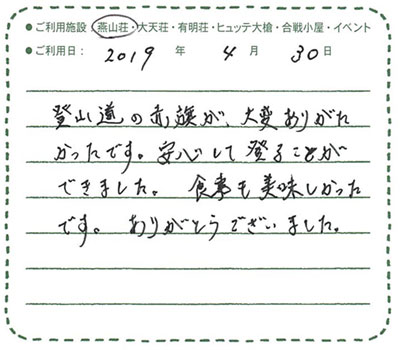 ●ご利用施設：燕山荘・大天荘・有明荘・ヒュッテ大槍・合戦小屋・イベント
●ご利用日：2019年4月30日
登山道の赤旗が、大変ありがた
かったです。安心して登ることが
できました。食事も美味しかった
です。ありがとうございました。